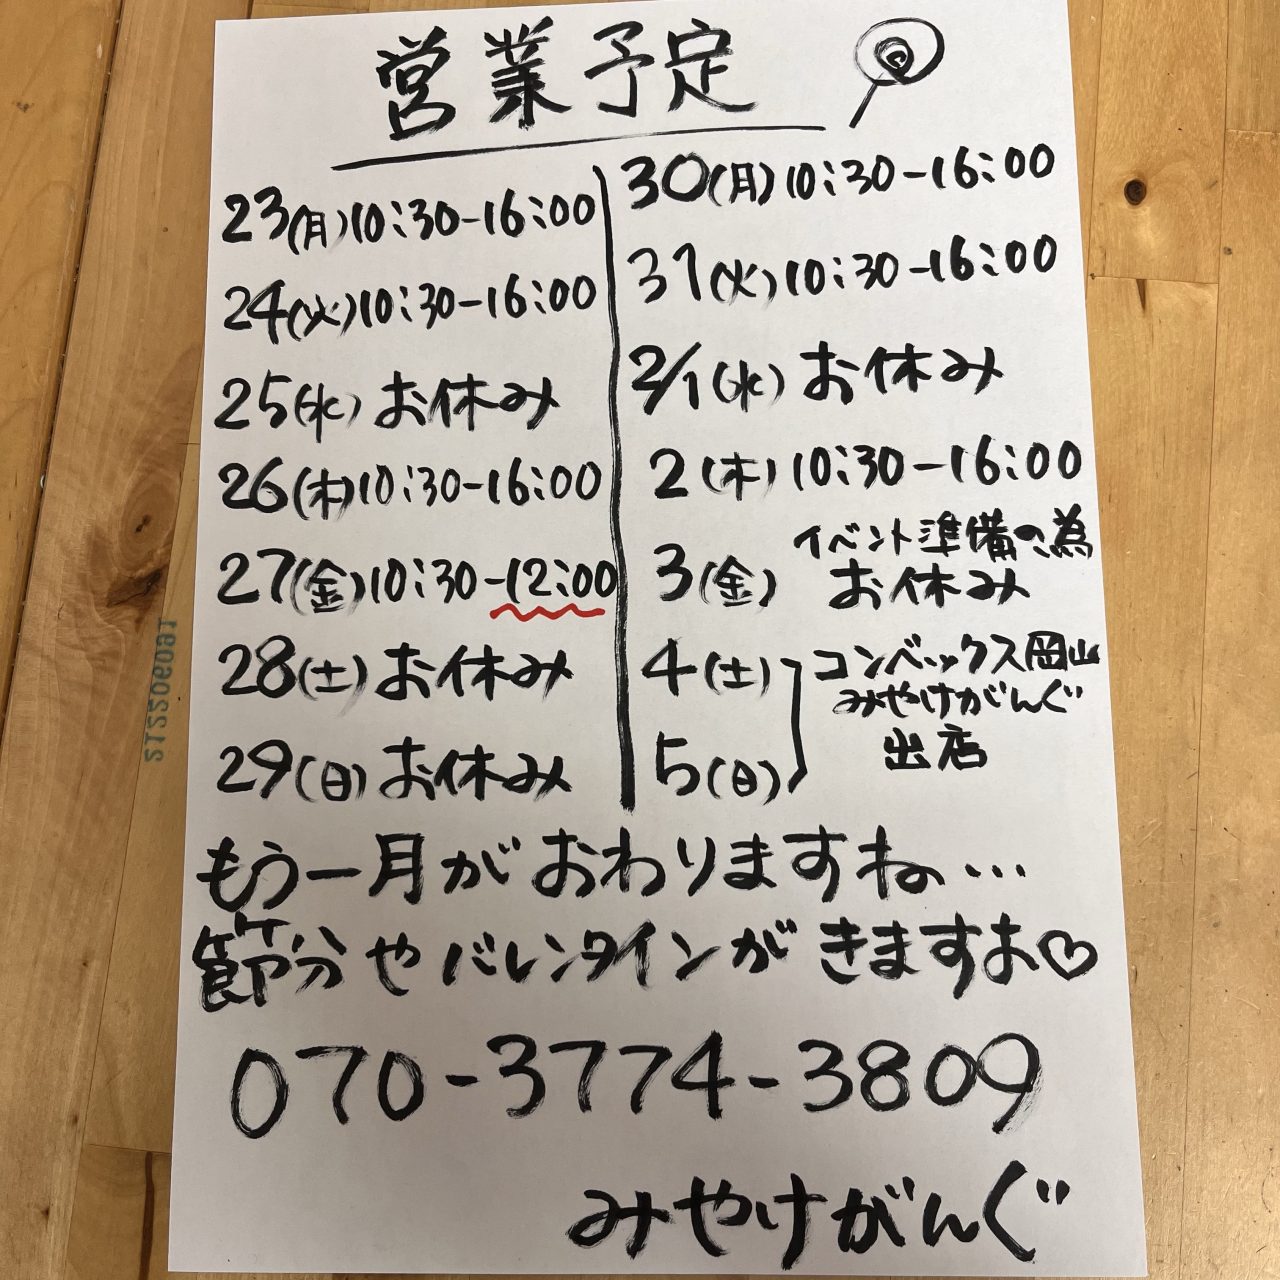 営業予定
23(月)10:30-16:00
24(火)10:30-16:00
25(水)お休み
26(木)10:30-16:00
27(金)10:30-12:00
28(土)お休み
29(日)お休み
30(月)10:30-16:00
31(火)10:30-16:00
2/1(水)お休み
2(木)10:30-16:00
3(金)イベント準備の為
お休み
4(土)コンベックス岡山
みやけがんぐ
5(日)出店
もう一月がおわりますね…
節分やバレンタインがきますよ♡
070-3774-3809
みやけがんぐ